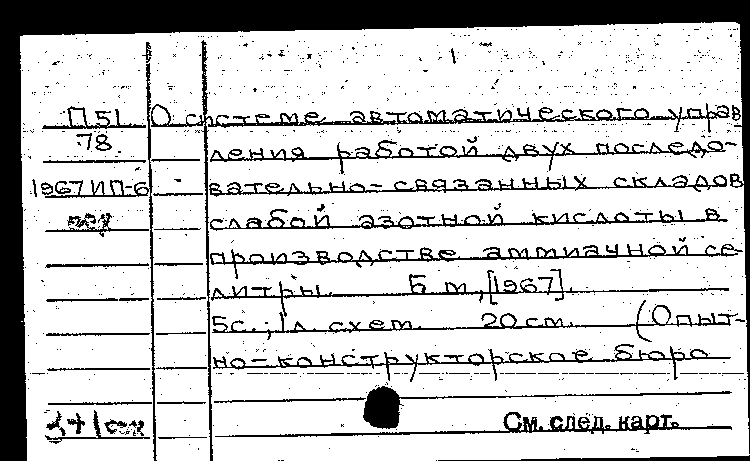 П51 О системе автоматического управ
78. ления работой двух последо-
1967ИП-6 вательно-связанных складов
слабой азотной кислоты в
производстве аммиачной се-
литры. Б м., [1967].
5с., 1л. схем. 20 см. (Опыт-
но-конструкторское бюро
См. след. карт.